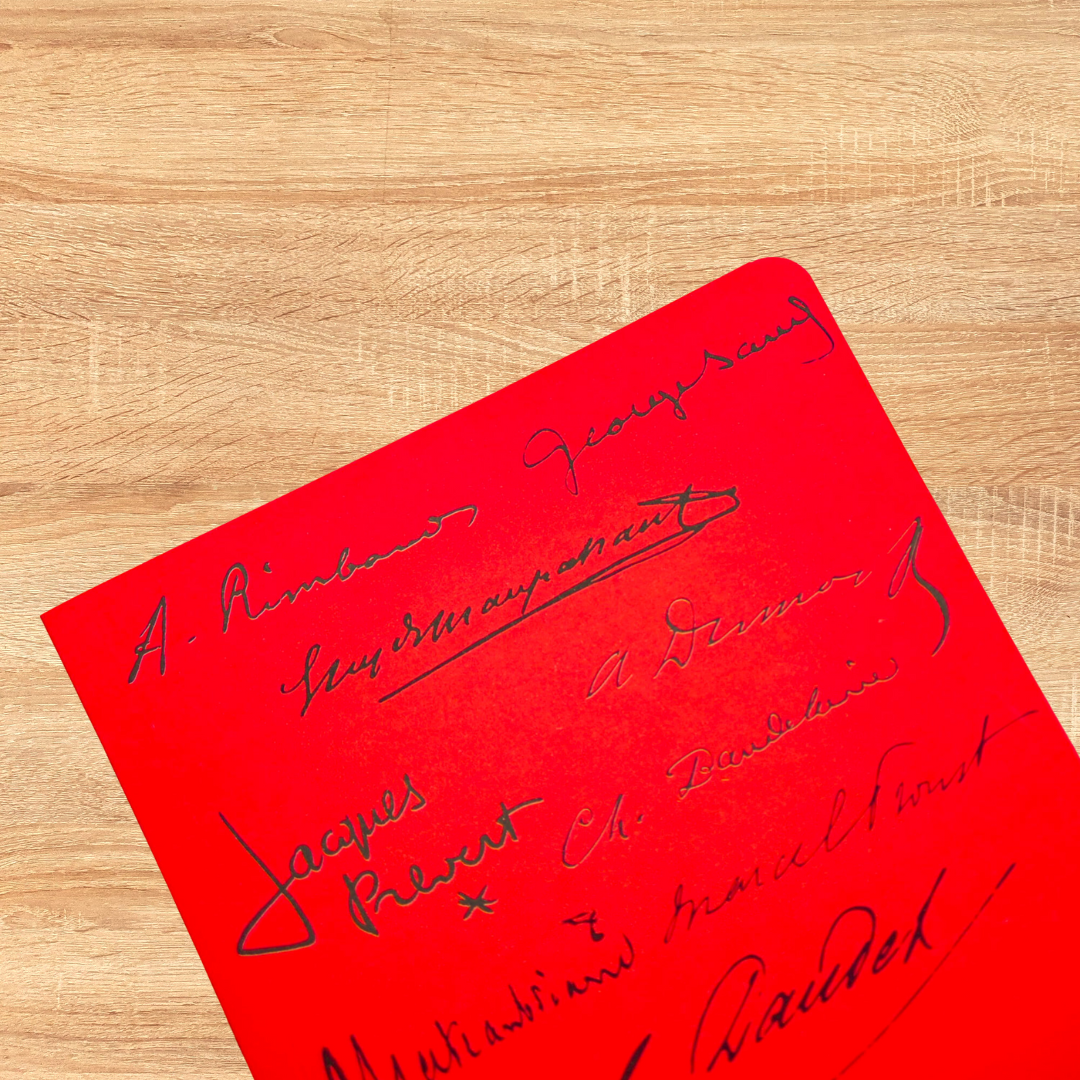 A. Rimbaud
George Sand
Guy de Maupassant
A Dumas
Jacques
Prévert
Ch. Baudelaire
Marcel Proust
Chateaubriand
Daudet